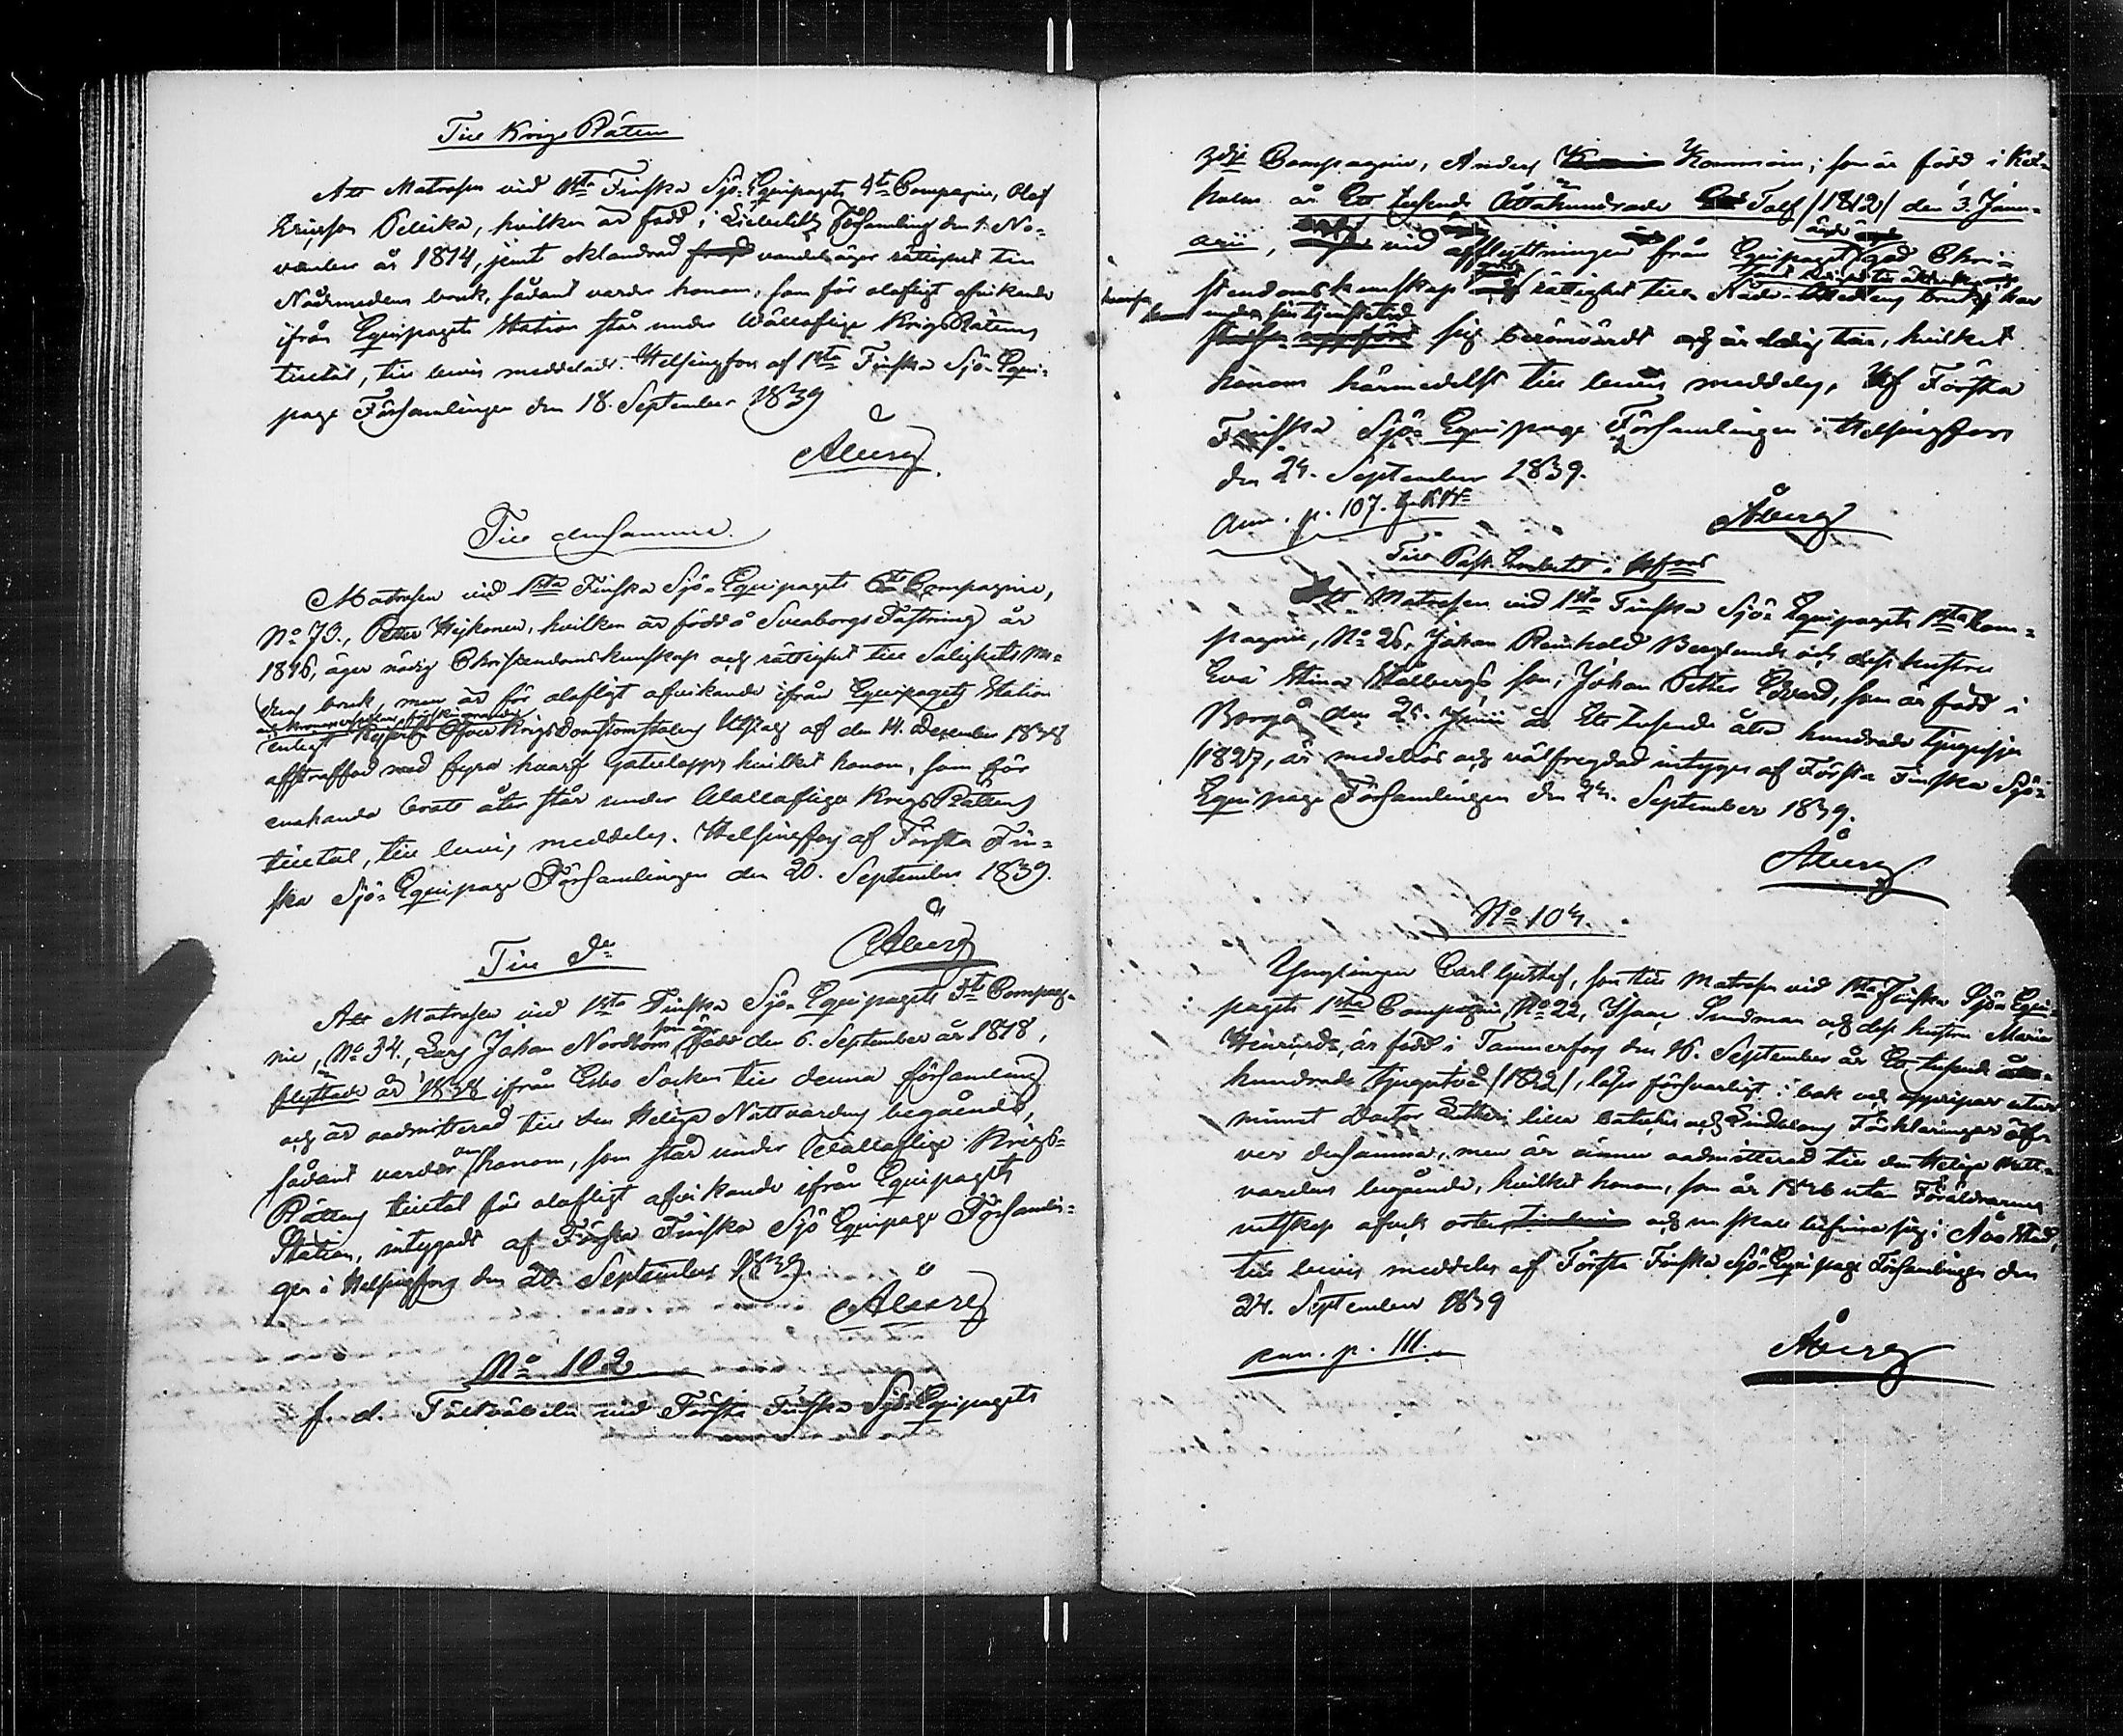 Till Krigs Rätten
Att Matrosen vid 1sta Finska Sjö-Equipagets 4de Compagnie, Olof
Ericsson Pelkka, hvilken är född i Libelitz Församling den 1. No-
vember år 1814, jemte oklandrad vandel äger rättighet till
Nådemedlens bruk, sådant varder honom, som för olofligt afvikande
ifrån Equipagets Station står under Wällofliga Krigs Rättens
tilltal, till bevis meddeladt. Helsingfors af 1sta Finska Sjö-Equi-
page Församlingen den 18. September 1839
Åberg
Till densamma.
Matrosen vid 1sta Finska Sjö-Equipagets 6te Compagnie,
No 70., Petter Hejkonen, hvilken är född å Sveaborgs Fästning år
1816, äger nödig Christendomskunskap och rättighet till Salighets me-
dlens bruk, men är för olofligt afvikande ifrån Equipagets Station
enligt Kejserl. Öfver Krigs Domstolens Utslag af den 14. December 1838
afstraffad med fyra hvarf Gatulopp, hvilket honom, som för
enahanda brott åter står under Wällofliga Krigs Rättens
tilltal, till bevis meddelas. Helsingfors af Första Fin-
ska Sjö-Equipage Församlingen den 20. September 1839.
Åberg
Till Do
Att Matrosen vid 1sta Finska Sjö-Equipagets 3de Compag-
nie, No 34., Lars Johan Nordblom, som är född den 6. September år 1818,
flyttade år 1838 ifrån Esbo Socken till denna församling
och är oadmitterad till den Heliga Nattvardens begående,
sådant varder om honom, som står under Wällofliga Krigs-
Rättens tilltal för olofligt afvikande ifrån Equipagets
Station, intygadt af Första Finska Sjö Equipage Församlin-
gen i Helsingfors den 20. September 1839.
Åberg
No 102
f. d. Fältväbeln vid Första Finska Sjö-Equipagets
3dje Compagnie, Anders Kommoin, som är född i Kex-
holm år Ett tusende Åttahundrade Tolf /1812/ den 3. Janu-
arii, vid afflyttningen från Equipaget god Chri-
stendomskunskap rättighet till Nåde-Medlens bruk, har
under sin tjenstetid
sig berömvärdt och är ledig till, hvilket
honom härmedelst till bevis meddelas, Af Första
Finska Sjö-Equipage Församlingen i Helsingfors
den 24. September 1839.
Ann. p. 107.
Åberg
Till Past. Embetet i Hfors
Att Matrosen vid 1sta Finska Sjö-Equipagets 1sta Com-
pagnie, No 26. Johan Reinhold Berglunds och dess hustru
Eva Stina Stålbergs son, Johan Petter Edvard, som är född i
Borgå den 25. Junii år Ett Tusende åtta hundrade tjugusju
/1827, är medellös och välfrejdad intygas af Första Finska Sjö-
Equipage Församlingen den 24. September 1839.
Åberg
No 104.
Ynglingen Carl Gustaf, son till Matrosen vid 1sta Finska Sjö-Equi-
pagets 1sta Compagnie, No 22, Isaac Sundman och dess hustru Maria
Henricsdr, är född i Tammerfors den 16. September år Ett tusende åtta-
hundrade tjugutvå /1822/, läser försvarligt i bok och upprepar utur
minnet Doctor Lutheri lilla Cateches och Lindeblads Förklaringar öf-
ver densamma, men är ännu oadmitterad till den Heliga Natt-
vardens begående, hvilket honom, som år 1836 utan Föräldrarnes
vetskap afvek orten och nu skall befinna sig i Åbo Stad,
till bevis meddelas af Första Finska Sjö-Equipage Församlingen den
24. September 1839
Ann. p. 111.
Åberg